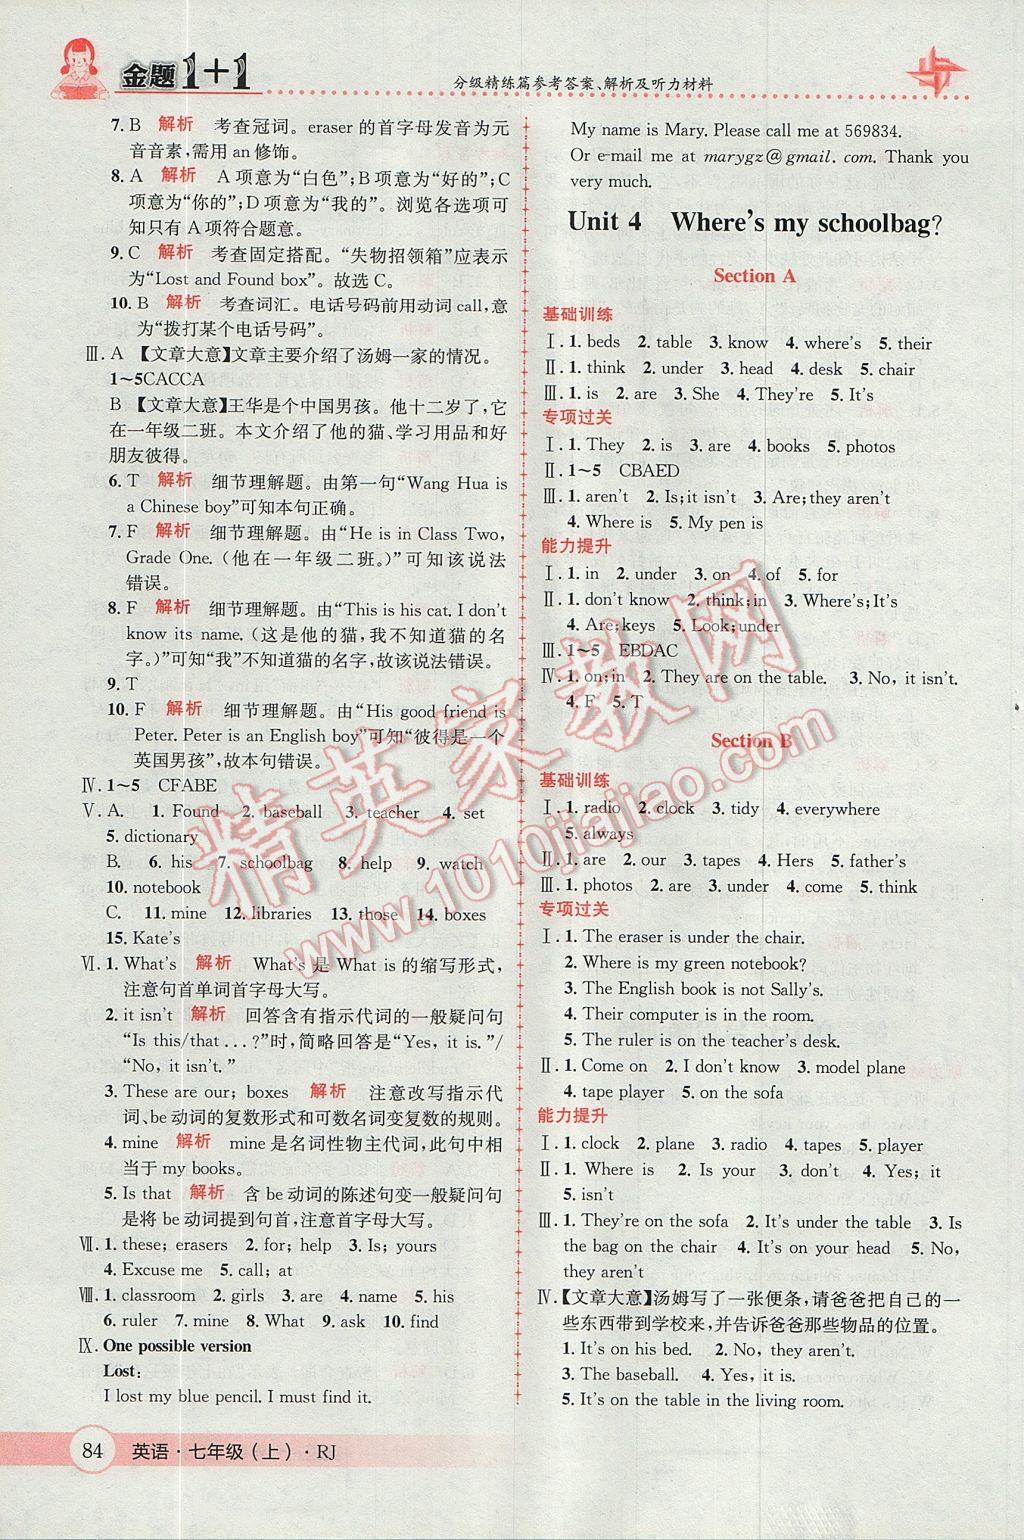 金题1+1
分级精练篇参考答案、解析及听力材料
7. B 解析 考查冠词。eraser 的首字母发音为元
音音素,需用 an 修饰。
8. A 解析 A 项意为“白色”;B 项意为“好的”;C
项意为“你的”;D 项意为“我的”。浏览各选项可
知只有 A 项符合题意。
9. C 解析 考查固定搭配。“失物招领箱”应表示
为“Lost and Found box”。故选 C。
10. B 解析 考查词汇。电话号码前用动词 call,意
为“拨打某个电话号码”。
Ⅲ. A 【文章大意】文章主要介绍了汤姆一家的情况。
1~5CACCA
B 【文章大意】王华是个中国男孩。他十二岁了,它
在一年级二班。本文介绍了他的猫、学习用品和好
朋友彼得。
6. T 解析 细节理解题。由第一句“Wang Hua is
a Chinese boy”可知本句正确。
7. F 解析 细节理解题。由“He is in Class Two,
Grade One. (他在一年级二班。)”可知该说法
错误。
8. F 解析 细节理解题。由“This is his cat. I don't
know its name. (这是他的猫,我不知道猫的名
字。)”可知“我”不知道猫的名字,故该说法错误。
9. T
10. F 解析 细节理解题。由“His good friend is
Peter. Peter is an English boy”可知“彼得是一个
英国男孩”,故本句错误。
Ⅳ. 1~5 CFABE
Ⅴ. A. 1. Found 2. baseball 3. teacher 4. set
5. dictionary
B. 6. his 7. schoolbag 8. help 9. watch
10. notebook
C. 11. mine 12. libraries 13. those 14. boxes
15. Kate's
Ⅵ. 1. What's 解析 What's 是 What is 的缩写形式,
注意句首单词首字母大写。
2. it isn't 解析 回答含有指示代词的一般疑问句
“Is this/that...?”时,简略回答是“Yes, it is.”/
“No, it isn't.”
3. These are our; boxes 解析 注意改写指示代
词、be 动词的复数形式和可数名词变复数的规则。
4. mine 解析 mine 是名词性物主代词,此句中相
当于 my books。
5. Is that 解析 含 be 动词的陈述句变一般疑问句
是将 be 动词提到句首,注意首字母大写。
Ⅶ. 1. these; erasers 2. for; help 3. Is; yours
4. Excuse me 5. call; at
Ⅷ. 1. classroom 2. girls 3. are 4. name 5. his
6. ruler 7. mine 8. What 9. ask 10. find
Ⅸ. One possible version
Lost:
I lost my blue pencil. I must find it.
My name is Mary. Please call me at 569834.
Or e-mail me at marygz@gmail.com. Thank you
very much.
Unit 4 Where's my schoolbag?
Section A
基础训练
Ⅰ. 1. beds 2. table 3. know 4. where's 5. their
Ⅱ. 1. think 2. under 3. head 4. desk 5. chair
Ⅲ. 1. is 2. are 3. She 4. They're 5. It's
专项过关
Ⅰ. 1. They 2. is 3. are 4. books 5. photos
Ⅱ. 1~5 CBAED
Ⅲ. 1. aren't 2. Is; it isn't 3. Are; they aren't
4. Where is 5. My pen is
能力提升
Ⅰ. 1. in 2. under 3. on 4. of 5. for
Ⅱ. 1. don't know 2. think; in 3. Where's; It's
4. Are; keys 5. Look; under
Ⅲ. 1~5 EBDAC
Ⅳ. 1. on; in 2. They are on the table. 3. No, it isn't.
4. F 5. T
Section B
基础训练
Ⅰ. 1. radio 2. clock 3. tidy 4. everywhere
5. always
Ⅱ. 1. are 2. our 3. tapes 4. Hers 5. father's
Ⅲ. 1. photos 2. are 3. under 4. come 5. think
专项过关
Ⅰ. 1. The eraser is under the chair.
2. Where is my green notebook?
3. The English book is not Sally's.
4. Their computer is in the room.
5. The ruler is on the teacher's desk.
Ⅱ. 1. Come on 2. I don't know 3. model plane
4. tape player 5. on the sofa
能力提升
Ⅰ. 1. clock 2. plane 3. radio 4. tapes 5. player
Ⅱ. 1. Where is 2. Is your 3. don't 4. Yes; it
5. isn't
Ⅲ. 1. They're on the sofa 2. It's under the table 3. Is
the bag on the chair 4. It's on your head 5. No,
they aren't
Ⅳ. 【文章大意】汤姆写了一张便条,请爸爸把自己的一
些东西带到学校来,并告诉爸爸那些物品的位置。
1. It's on his bed. 2. No, they aren't.
3. The baseball. 4. Yes, it is.
5. It's on the table in the living room.
84 英语·七年级(上)·RJ
精英家教网
www.1010jiajiao.com